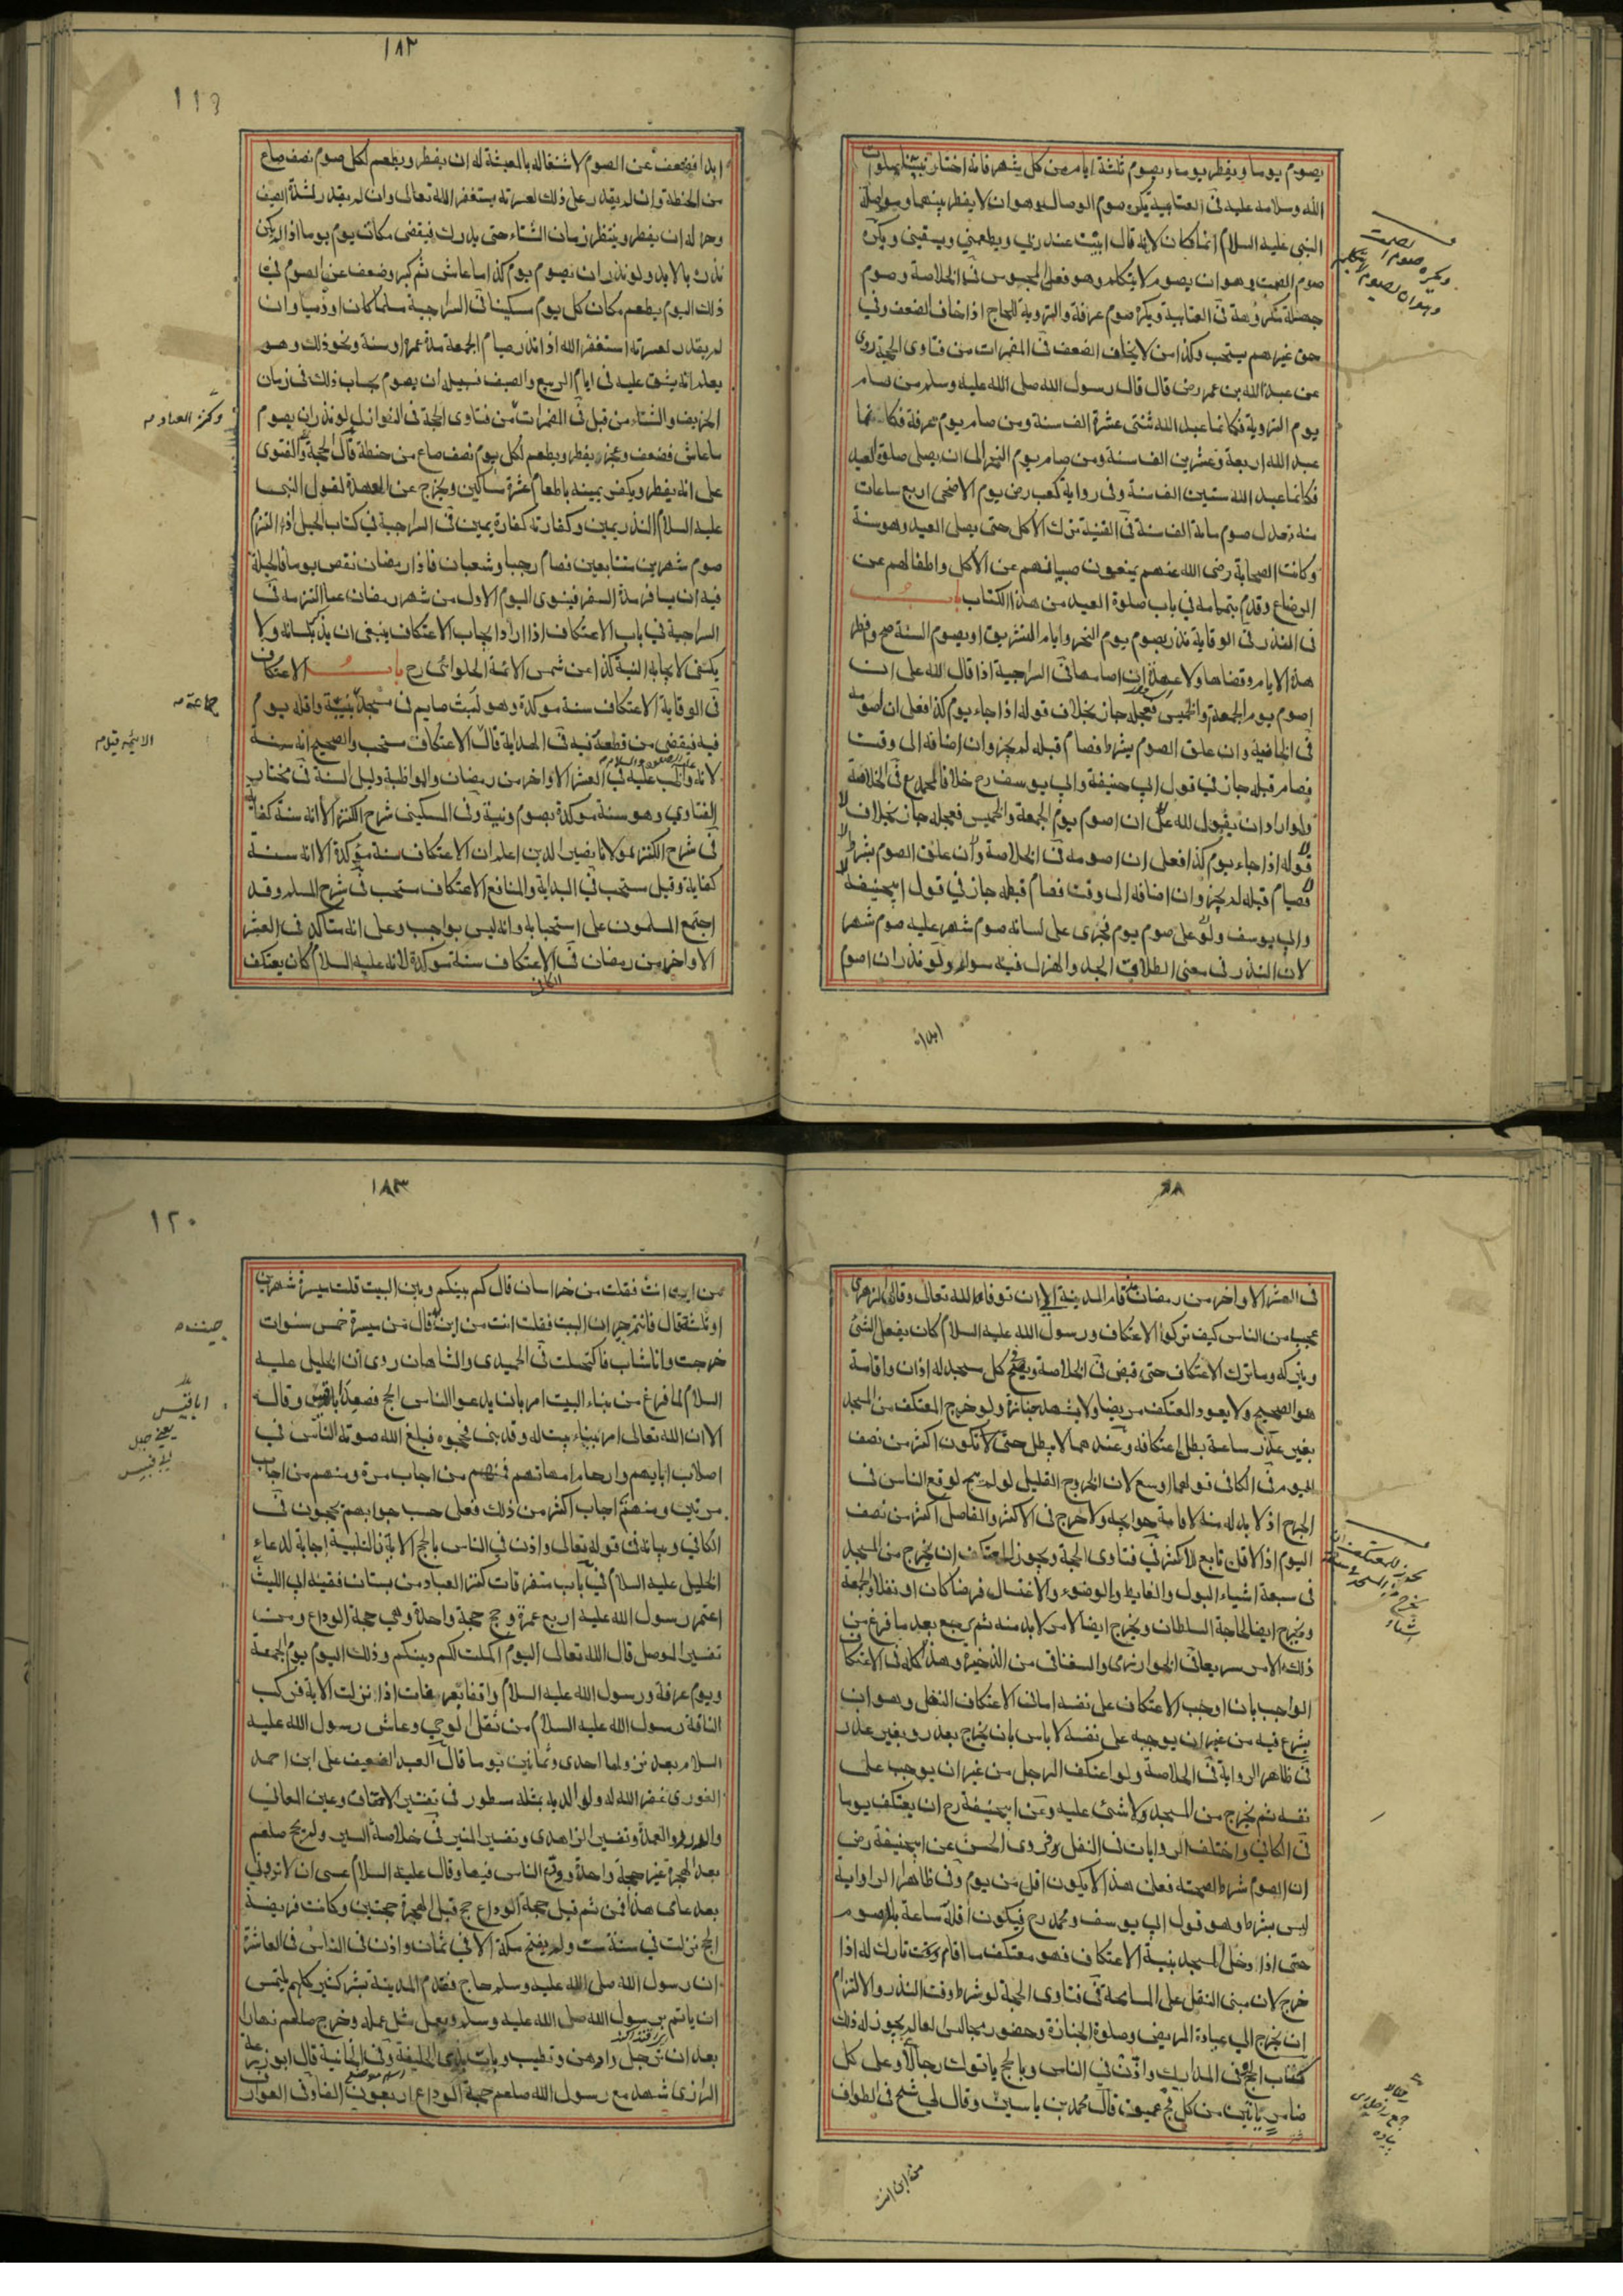 يصوم يوما ويفطر يوما ويصوم ثلثة ايام من كل شهر فانه اختار نبينا صلوات
الله وسلامه عليه في العتابية يكره صوم الوصال وهو ان لا يفطر بينهما ومواصلة
النبي عليه السلام انما كان لانه قال ابيت عند ربي ويطعمني ويسقيني ويكره
صوم الصمت وهو ان يصوم لا يتكلم وهو فعل المجوس في الخلاصة وصوم
مكروهة في العتابية ويكره صوم عرفة والتروية للحاج اذا خاف الضعف وفي
حق غيرهم يستحب وكذا من لا يخاف الضعف في المضمرات من فتاوى الحجة روى
عن عبد الله بن عمر رض قال قال رسول الله صلى الله عليه وسلم من صام
يوم التروية فكانما عبد الله ثنتي عشرة الف سنة ومن صام يوم عرفة فكانما
عبد الله اربعة وعشرين الف سنة ومن صام يوم النحر الى ان يصلى صلوة العيد
فكانما عبد الله ستين الف سنة وفي رواية كعب رض يوم الاضحى اربع ساعات
منه تعدل صوم ماية الف سنة في القنية ترك الاكل حتى يصلى العيد وهو سنة
وكانت الصحابة رضى الله عنهم يمنعون صبيانهم عن الاكل واطفالهم عن
الرضاع وقد مر بتمامه في باب صلوة العيد من هذا الكتاب باب
في النذر في الوقاية نذر بصوم يوم النحر وايام التشريق او بصوم السنة صح وفطر
هذه الايام وقضاها ولا عهدة ان صامها في السراجية اذا قال الله على ان
اصوم يوم الجمعة والخميس فعجله جاز بخلاف قوله اذا جاء يوم كذا فعلى ان اصومه
في الخانية وان علق الصوم بشرط فصام قبله لم يجز وان اضافه الى وقت
فصام قبله جاز في قول ابي حنيفة وابي يوسف رح خلافا لمحمد رح في الخلاصة
ولو اراد ان يقول لله على ان اصوم يوم الجمعة والخميس فعجله جاز بخلاف
قوله اذا جاء يوم كذا فعلى ان اصومه في الخلاصة وان علق الصوم بشرط
فصام قبله لم يجز وان اضافه الى وقت فصام قبله جاز في قول ابيحنيفة
وابي يوسف ولو على صوم يوم فجرى على لسانه صوم شهر عليه صوم شهر
لان النذر في معنى الطلاق الجد والهزل فيه سواء ولو نذر ان اصوم
ويكره صوم الصمت
وهو ان يصوم لا يتكلم
ابدا
١٨٢
١١٩
ابدا فضعف عن الصوم لاشتغاله بالمعيشة له ان يفطر ويطعم لكل صوم نصف صاع
من الحنطة وان لم يقدر على ذلك لعسرته يستغفر الله تعالى وان لم يقدر لشدة الصيف
وحره له ان يفطر وينتظر زمان الشتاء حتى يدرك فيقضى مكان يوم يوما اذا لم يكن
نذره بالابد ولو نذر ان يصوم يوم كذا ما عاش ثم كبر وضعف عن الصوم في
ذلك اليوم يطعم مكان كل يوم مسكينا في السراجية سلما كان او ذميا وان
لم يقدر لعسرته استغفر الله اذا نذر صيام الجمعة مدة عمره او سنة ونحو ذلك وهو
يعلم انه يشق عليه في ايام الربيع والصيف فسبيله ان يصوم بحساب ذلك في زمان
الخريف والشتاء من قبل في المضمرات من فتاوى الحجة في النوازل لو نذر ان يصوم
ما عاش فضعف وعجز يفطر ويطعم لكل يوم نصف صاع من حنطة قال الحجة والفتوى
على انه يفطر ويكفر يمينه باطعام عشرة مساكين ويخرج عن العهدة لقول النبي
عليه السلام النذر يمين وكفارته كفارة يمين في السراجية في كتاب الحيل اذا التزم
صوم شهرين متتابعين فصام رجبا وشعبان فاذا رمضان نقص يوما فالحيلة
فيه ان يسافر مدة السفر فينوى اليوم الاول من شهر رمضان عما التزمه في
السراجية في باب الاعتكاف اذا اراد ايجاب الاعتكاف ينبغى ان يذكر بلسانه ولا
يكفى لايجابه النية كذا عن شمس الائمة الحلوائى رح باب الاعتكاف
في الوقاية الاعتكاف سنة موكدة وهو لبث صايم في مسجد بنية واقله يوم
فيه فيقضى من قطعه فيه في الهداية قال الاعتكاف مستحب والصحيح انه سنة
لانه واظب عليه في العشر الاواخر من رمضان والمواظبة دليل السنة في مختار
الفتاوى وهو سنة موكدة بصوم ونية وفي المسكين شرح الكنز الا انه سنة كفاية
في شرح الكنز لمولانا نصير الدين اعلم ان الاعتكاف سنة موكدة الا انه سنة
كفاية وقيل مستحب في البداية والمنافع الاعتكاف مستحب في شرح المسلم وقد
اجتمع المسلمون على استحبابه وانه ليس بواجب وعلى انه متاكد في العشر
الاواخر من رمضان في الاعتكاف سنة موكدة لانه عليه السلام كان يعتكف
جماعة
في العشر الاواخر من رمضان قام المدينة الى ان توفاه الله تعالى وقال الزهرى
عجبا من الناس كيف تركوا الاعتكاف ورسول الله عليه السلام كان يفعل الشئ
ويتركه وما ترك الاعتكاف حتى قبض في الخلاصة ويصح في كل مسجد له اذان واقامة
هو الصحيح ولا يعود المعتكف مريضا ولا يشهد جنازة ولو خرج المعتكف من المسجد
بغير عذر ساعة بطل اعتكافه وعندهما لا يبطل حتى لا تكون اكثر من نصف
اليوم في الكافي قولهما اوسع لان الخروج القليل لو لم يبح لوقع الناس في
الحرج اذ لا بد له منه لاقامة حوايجه ولا حرج في الاكثر والفاصل اكثر من نصف
اليوم اذ الاقل تابع للاكثر في فتاوى الحجة ويجوز للمعتكف ان يخرج من المسجد
في سبعة اشياء البول والغايط والوضوء والاغتسال فرضا كان او نفلا والجمعة
ويخرج ايضا لحاجة السلطان ويخرج ايضا لامر لا بد منه ثم يرجع بعد ما فرغ من
ذلك الامر سريعا في الخوارزمى والسغناقى من الذخيرة وهذا كله في الاعتكاف
الواجب بان اوجب الاعتكاف على نفسه اما في الاعتكاف النفل وهو ان
يشرع فيه من غير ان يوجبه على نفسه لا باس بان يخرج بعذر وبغير عذر
في ظاهر الرواية في الخلاصة ولو اعتكف الرجل من غير ان يوجب على
نفسه ثم يخرج من المسجد ولا شئ عليه وعن ابيحنيفة رح ان يعتكف يوما
في الكافي واختلف الروايات في النفل فروى الحسن عن ابيحنيفة رض
ان الصوم شرط لصحته فعلى هذا لا يكون اقل من يوم وفي ظاهر الرواية
ليس بشرط وهو قول ابي يوسف ومحمد رح فيكون اقله ساعة بلا صوم
حتى اذا دخل المسجد بنية الاعتكاف فهو معتكف ما اقام وقت تارك له اذا
خرج لان مبنى النفل على المسامحة في فتاوى الحجة لو شرط وقت النذر والالتزام
ان يخرج الى عيادة المريض وصلوة الجنازة وحضور مجالس العالم يجوز له ذلك
كتاب الحج في المدارك واذن في الناس بالحج ياتوك رجالا وعلى كل
ضامر ياتين من كل فج عميق قال محمد بن ياسين وقال لي شيخ في الطواف
من اين انت
١٨٣
١٢٠
من اين انت فقلت من خراسان قال كم بينكم وبين البيت قلت مسيرة شهرين
او ثلثة قال فانتم جيران البيت فقلت انت من اين قال من مسيرة خمس سنوات
خرجت وانا شاب فاكتهلت في الحميدى والشاهان روى ان الخليل عليه
السلام لما فرغ من بناء البيت امر بان يدعو الناس الحج فصعد ابا قبيس وقال
الا ان الله تعالى امر ببناء بيت له وقد بنى فحجوه فبلغ الله صوته الناس في
اصلاب ابايهم وارحام امهاتهم فمنهم من اجاب مرة ومنهم من اجاب
مرتين ومنهم اجاب اكثر من ذلك فعلى حسب جوابهم يحجون في
الكافي وبيانه في قوله تعالى واذن في الناس بالحج الاية فالتلبية اجابة لدعاء
الخليل عليه السلام في باب متفرقات كنز العباد من بستان فقيه ابي الليث
اعتمر رسول الله عليه اربع عمرة وحج حجة واحدة وهي حجة الوداع ومن
تفسير الموصل قال الله تعالى اليوم اكملت لكم دينكم وذلك اليوم يوم الجمعة
ويوم عرفة ورسول الله عليه السلام واقفا بعرفات اذا نزلت الاية فبركت
الناقة رسول الله عليه السلام من ثقل الوحي وعاش رسول الله عليه
السلام بعد نزولها احدى وثمانين يوما قال العبد الضعيف على ابن احمد
الغورى غفر الله له ولوالديه بمثله سطور في تفسير الاتقان وعين المعاني
والدرر والعمدة وتفسير الزاهدى وتفسير المنير في خلاصة السير ولم يحج صلعم
بعد الهجرة غير حجة واحدة وودع الناس فيها وقال عليه السلام عسى ان لا تروني
بعد عامى هذا فمن ثم قيل حجة الوداع حج قبل الهجرة حجتين وكانت فريضة
الحج نزلت في سنة ست ولم يفتح مكة الا في ثمان واذن في الناس في العاشرة
ان رسول الله صلى الله عليه وسلم حاج فقدم المدينة بشر كثير كلهم يلتمس
ان ياتم برسول الله صلى الله عليه وسلم ويعمل مثل عمله وخرج صلعم نهارا
بعد ان ترجل وادهن وتطيب وبات بذى الحليفة وفي الخانية قال ابو زرعة
الرازى شهد مع رسول الله صلعم حجة الوداع اربعون الفا وفي العوارف
ابا قبيس
يعنى جبل
ابي قبيس